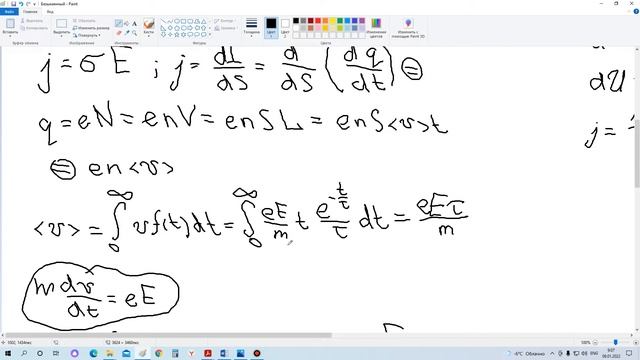 Безымянный - Paint
Вставить
Вырезать
Копировать
Выделить
Обрезать
Изменить размер
Повернуть
Кисти
Контур
Заливка
Толщина
Цвет 1
Цвет 2
Изменение цветов
Изменить с помощью Paint 3D
Буфер обмена
Изображение
Инструменты
Фигуры
Цвета
j = σE ; j = dI/dS = d/dS (dq/dt) ⊜
dU
q = eN = enV = enSL = enS<v>t
j =
⊜ en<v>
<v> = ∫₀^∞ v f(t) dt = ∫₀^∞ eE/m t e^(-t/τ)/τ dt = eEτ/m
m dv/dt = eE
100%
-6°C Облачно
9:07
09.01.2022